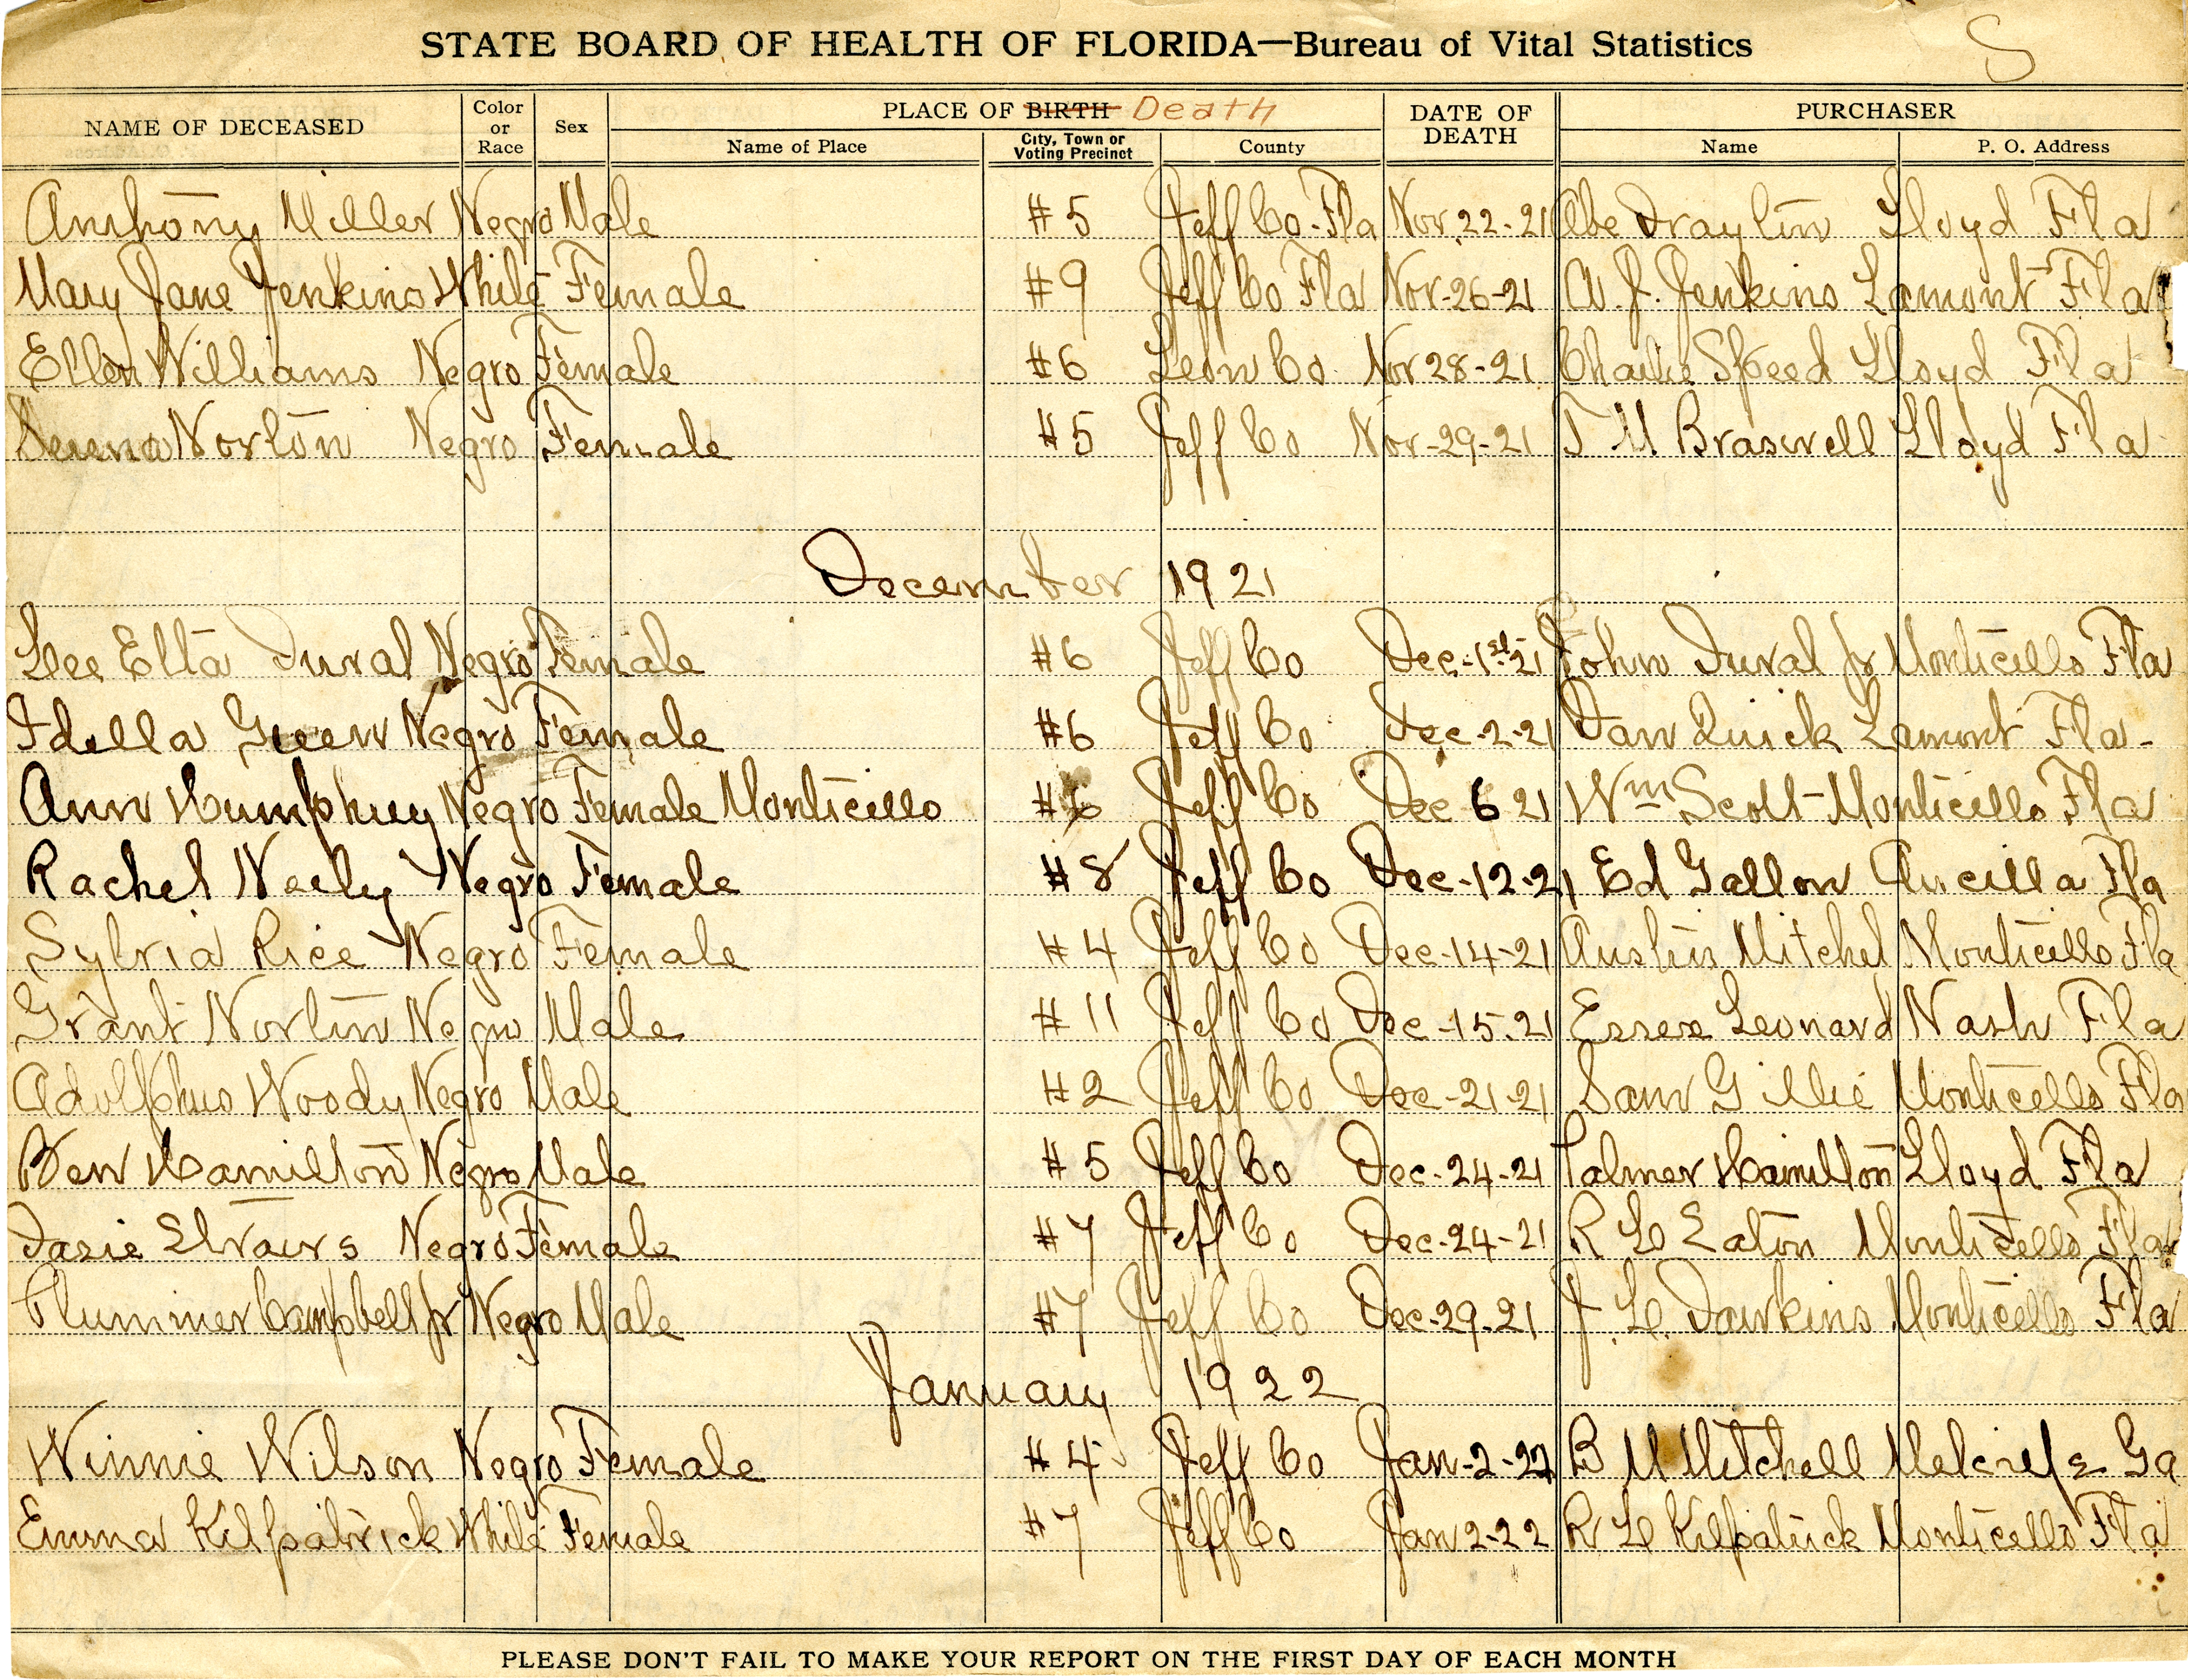 S
STATE BOARD OF HEALTH OF FLORIDA—Bureau of Vital Statistics
NAME OF DECEASED Color or Race Sex PLACE OF BIRTH Death DATE OF DEATH PURCHASER
Name of Place City, Town or Voting Precinct County Name P. O. Address
Anthony Miller Negro Male #5 Jeff Co. Fla Nov. 22-21 Abe Fraylin Lloyd Fla
Mary Jane Jenkins White Female #9 Jeff Co Fla Nov-26-21 A. J. Jenkins Lamont Fla
Ellen Williams Negro Female #6 Leon Co. Nov 28-21 Charlie Speed Lloyd Fla
Norton Negro Female #5 Jeff Co Nov-29-21 T M Braswell Lloyd Fla
December 1921
Lee Etta Duval Negro Female #6 Jeff Co Dec-1st-21 John Duval Jr Monticello Fla
Idella Green Negro Female #6 Jeff Co Dec-2-21 Dan Quick Lamont Fla-
Ann Humphrey Negro Female Monticello #6 Jeff Co Dec 6 21 Wm Scott-Monticello Fla
Rachel Neely Negro Female #8 Jeff Co Dec-12-21 Ed Gallon Aucilla Fla
Sylvia Rice Negro Female #4 Jeff Co Dec-14-21 Austin Mitchel Monticello Fla
Grant Norton Negro Male #11 Jeff Co Dec-15-21 Essex Leonard Nash Fla
Adolphus Woody Negro Male #2 Jeff Co Dec-21-21 Sam Gillie Monticello Fla
Ben Hamilton Negro Male #5 Jeff Co Dec-24-21 Palmer Hamilton Lloyd Fla
Dasie Negro Female #7 Jeff Co Dec-24-21 R L Eaton Monticello Fla
Plummer Campbell Jr Negro Male #7 Jeff Co Dec-29-21 J. L. Dawkins Monticello Fla
January 1922
Winnie Wilson Negro Female #4 Jeff Co Jan-2-22 B M Mitchell Ga
Emma Kilpatrick White Female #7 Jeff Co Jan 2-22 R L Kilpatrick Monticello Fla
PLEASE DON'T FAIL TO MAKE YOUR REPORT ON THE FIRST DAY OF EACH MONTH